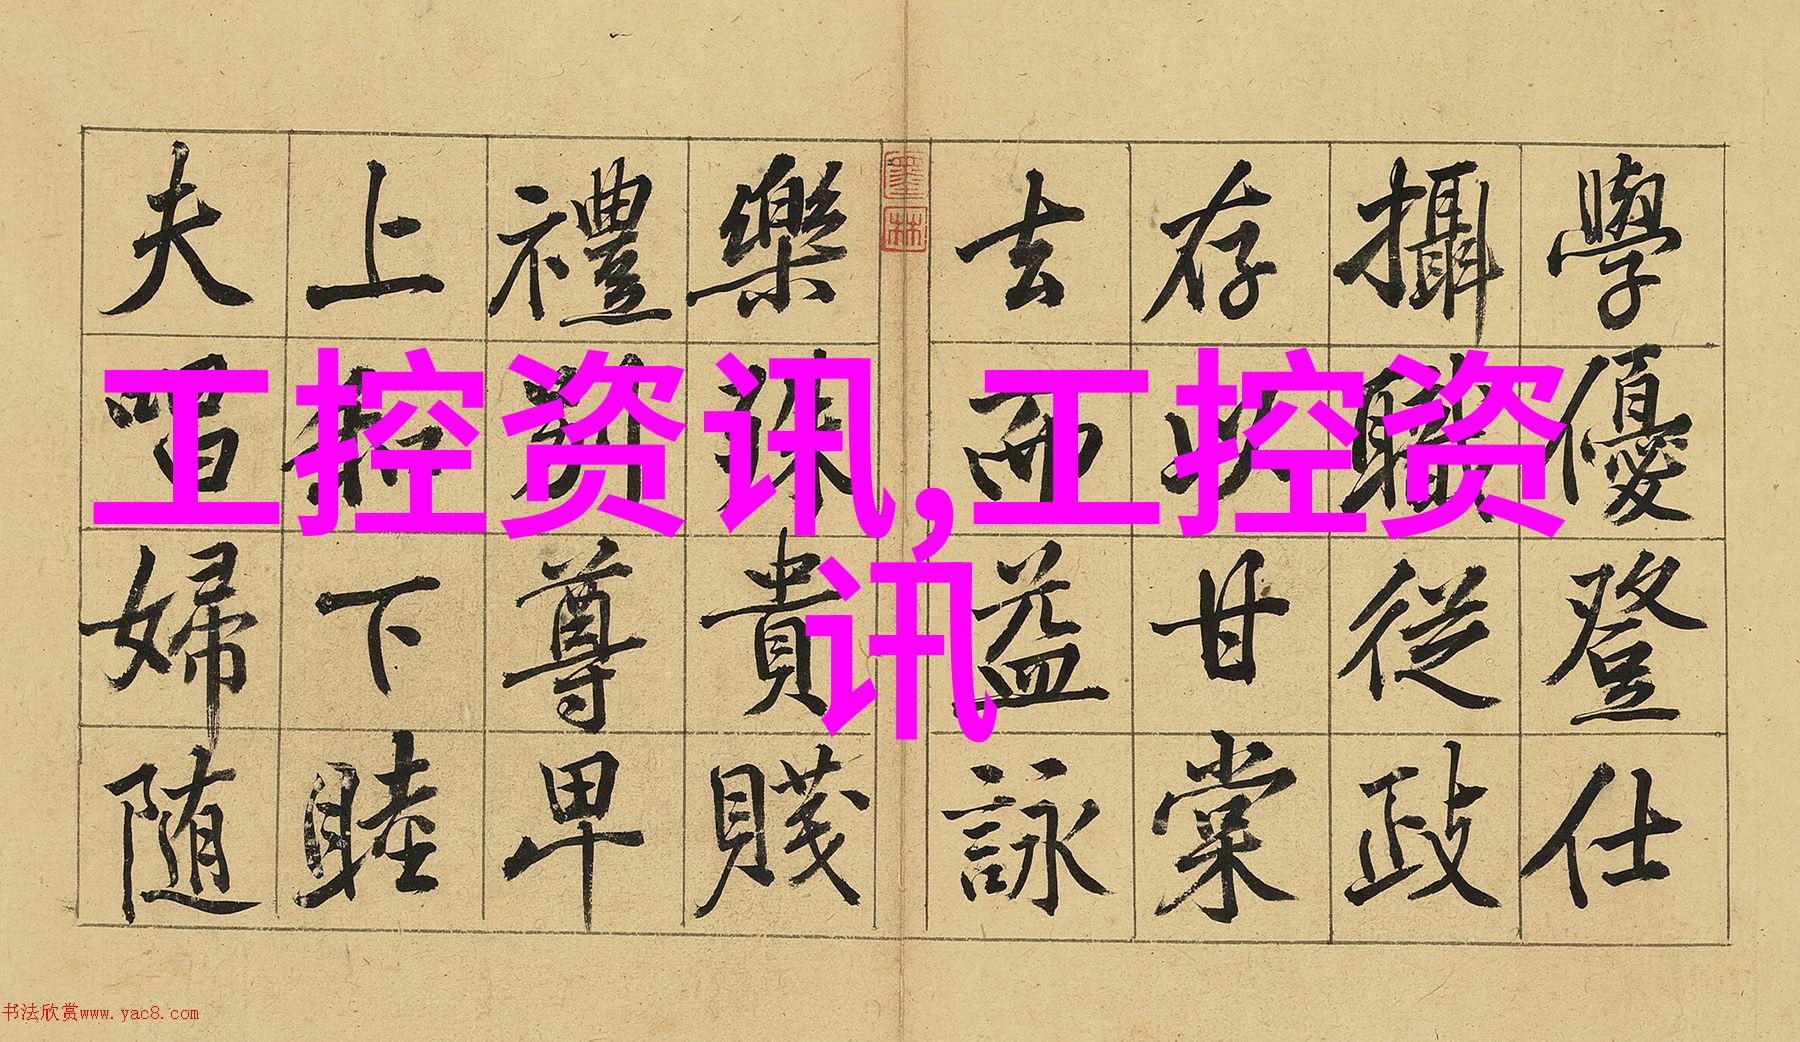 學優登仕
攝職從政
存以甘棠
去而益詠
墨林
樂殊貴賤
禮別尊卑
上下睦
夫唱婦随
工控资讯,工控资
讯
书法欣赏www.yac8.com